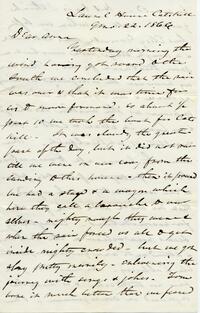 Laurel House Catskill
Dear Anna
Yesterday morning the
wind having got round to the
South we concluded that the rain
was over & that it was time for
us to move forward. So about
we took the boat for Cats
kill. It was cloudy the great
part of the day, but it did not rain
till we were in our way from the
landing to this house - then it poured
we had a stage & a wagon which
here they call a to our
selves - mighty rough they were &
when the rain forced us all to get
inside mighty crowded - but we got
along pretty merrily - enlivening the
journey with songs & jokes. Tom
bore it much better than we feared